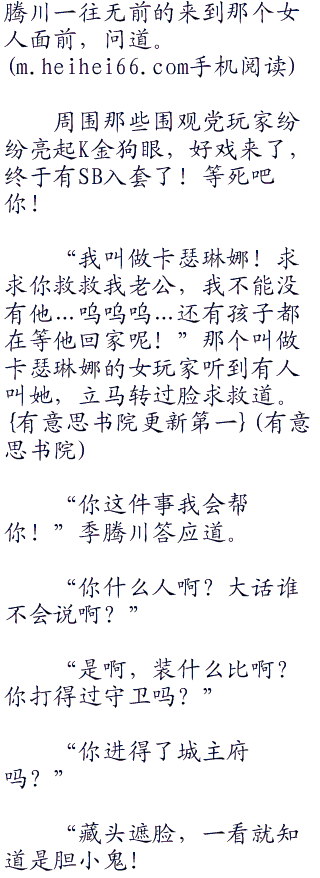 腾川一往无前的来到那个女
人面前，问道。
(m.heihei66.com手机阅读)
周围那些围观党玩家纷
纷亮起K金狗眼，好戏来了，
终于有SB入套了！等死吧
你！
“我叫做卡瑟琳娜！求
求你救救我老公，我不能没
有他…呜呜呜…还有孩子都
在等他回家呢！”那个叫做
卡瑟琳娜的女玩家听到有人
叫她，立马转过脸求救道。
{有意思书院更新第一}(有意
思书院)
“你这件事我会帮
你！”季腾川答应道。
“你什么人啊？大话谁
不会说啊？”
“是啊，装什么比啊？
你打得过守卫吗？”
“你进得了城主府
吗？”
“藏头遮脸，一看就知
道是胆小鬼！